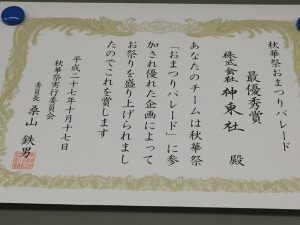 秋華祭おまつりパレード
最優秀賞
株式会社 神東社 殿
あなたのチームは秋華祭
「おまつりパレード」に参
加され優れた企画によって
お祭りを盛り上げられまし
たのでこれを賞します
平成二十七年十月十七日
秋華祭実行委員会
委員長 桑山 鉄男